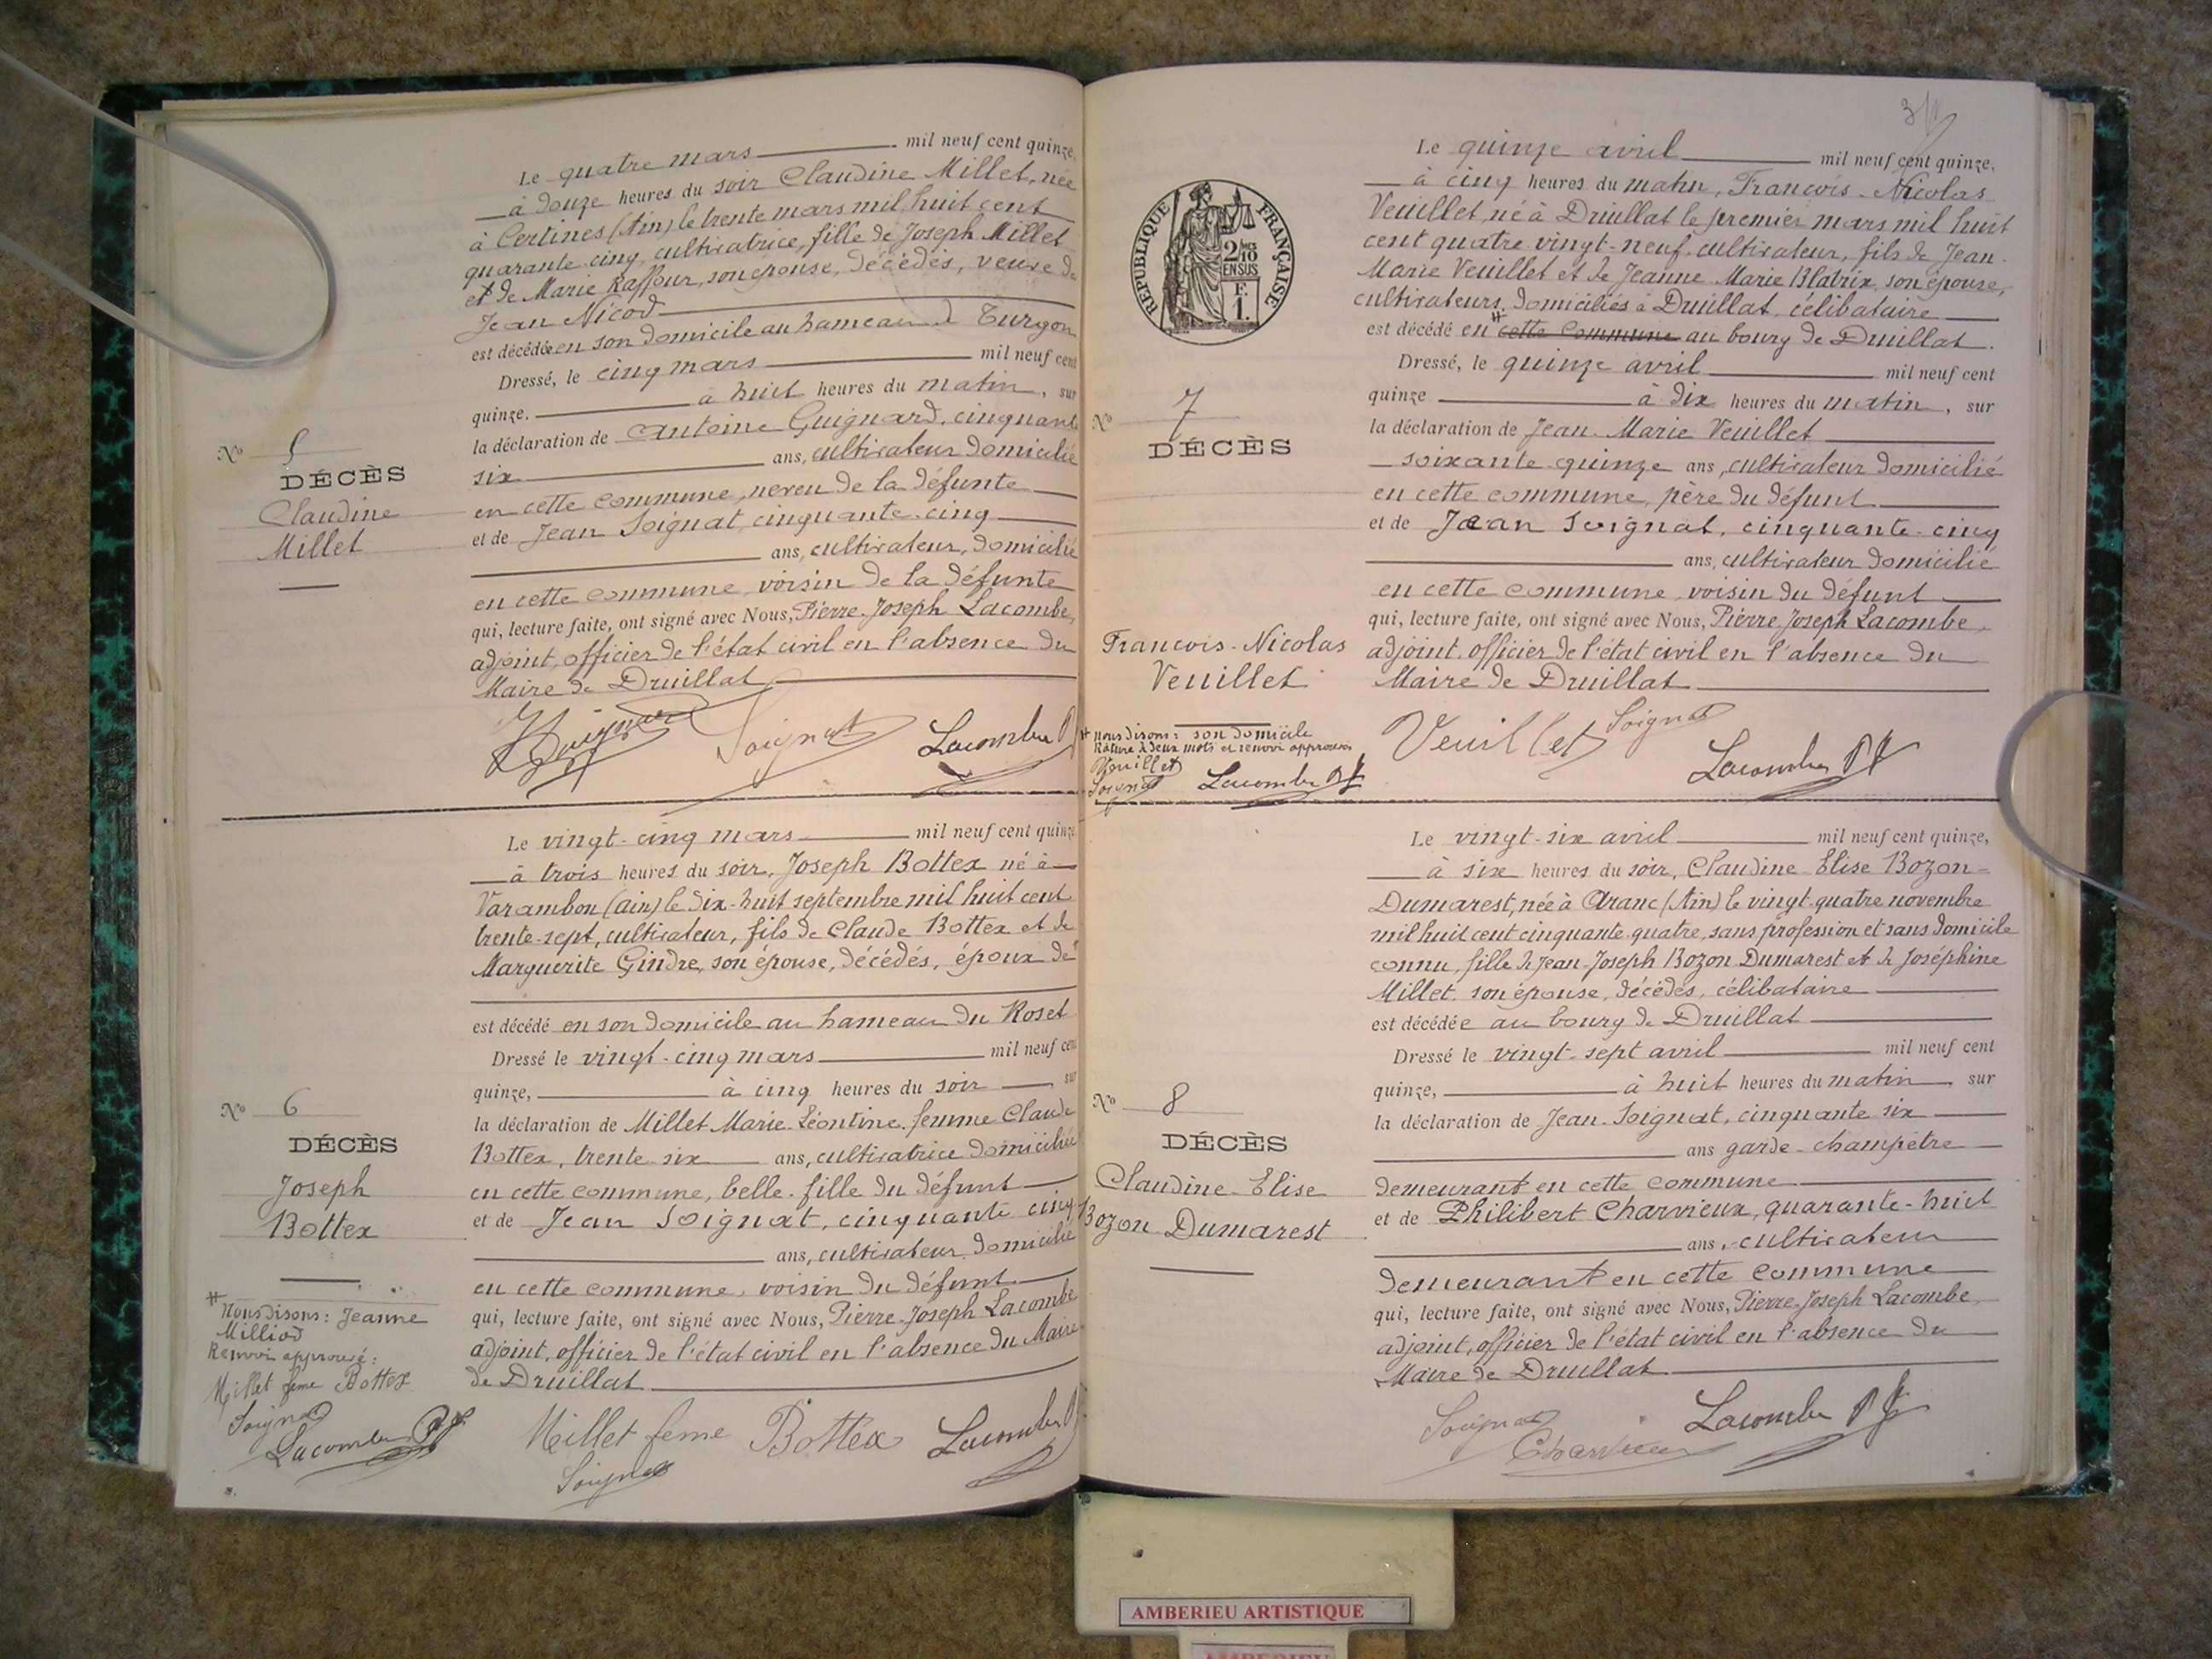 Le quatre mars mil neuf cent quinze,
à douze heures du soir Claudine Millet, née
à Certines (Ain) le trente mars mil huit cent
quarante cinq, cultivatrice, fille de Joseph Millet
et de Marie Raffour, son épouse, décédés, veuve de
Jean Nicod
est décédée en son domicile au hameau de Turgon
Dressé, le cinq mars mil neuf cent
quinze. à huit heures du matin, sur
la déclaration de Antoine Guignard, cinquante
six ans, cultivateur domicilié
en cette commune, neveu de la défunte
et de Jean Soignat, cinquante-cinq
ans, cultivateur, domicilié
en cette commune, voisin de la défunte
qui, lecture faite, ont signé avec Nous, Pierre-Joseph Lacombe,
adjoint, officier de l'état civil en l'absence du
Maire de Druillat
Soignat Lacombe
No 5
DÉCÈS
Claudine
Millet
Le vingt-cinq mars mil neuf cent quinze
à trois heures du soir, Joseph Bottex né à
Varambon (ain) le dix-huit septembre mil huit cent
trente-sept, cultivateur, fils de Claude Bottex et de
Marguerite Gindre, son épouse, décédés, époux de #
est décédé en son domicile au hameau du Roset
Dressé le vingt-cinq mars mil neuf cent
quinze, à cinq heures du soir, sur
la déclaration de Millet Marie-Léontine, femme Claude
Bottex, trente-six ans, cultivatrice domiciliée
en cette commune, belle-fille du défunt
et de Jean Soignat, cinquante cinq
ans, cultivateur domicilié
en cette commune, voisin du défunt
qui, lecture faite, ont signé avec Nous, Pierre-Joseph Lacombe
adjoint, officier de l'état civil en l'absence du Maire
de Druillat
Millet feme Bottex Lacombe
Soignat
No 6
DÉCÈS
Joseph
Bottex
# Nous disons: Jeanne
Milliod
Renvoi approuvé:
Millet feme Bottex
Soignat
Lacombe
3
Le quinze avril mil neuf cent quinze.
à cinq heures du matin, François-Nicolas
Veuillet, né à Druillat le premier mars mil huit
cent quatre vingt-neuf, cultivateur, fils de Jean-
Marie Veuillet et de Jeanne-Marie Blatrix, son épouse,
cultivateurs, domiciliés à Druillat, célibataire
est décédé en # cette commune au bourg de Druillat.
Dressé, le quinze avril mil neuf cent
quinze à dix heures du matin, sur
la déclaration de Jean-Marie Veuillet
soixante-quinze ans, cultivateur domicilié
en cette commune, père du défunt
et de Jean Soignat, cinquante-cinq
ans, cultivateur domicilié
en cette commune, voisin du défunt
qui, lecture faite, ont signé avec Nous, Pierre-Joseph Lacombe,
adjoint, officier de l'état civil en l'absence du
Maire de Druillat
Veuillet Soignat
Lacombe
RÉPUBLIQUE FRANÇAISE
2/10
EN SUS
F.
1.
No 7
DÉCÈS
François-Nicolas
Veuillet
# nous disons: son domicile
Rature de deux mots et renvoi approuvés
Veuillet
Soignat Lacombe
Le vingt-six avril mil neuf cent quinze,
à six heures du soir, Claudine-Elise Bozon-
Dumarest, née à Aranc (Ain) le vingt-quatre novembre
mil huit cent cinquante-quatre, sans profession et sans domicile
connu, fille de Jean-Joseph Bozon Dumarest et de Joséphine
Millet, son épouse, décédés, célibataire
est décédée au bourg de Druillat
Dressé le vingt-sept avril mil neuf cent
quinze, à huit heures du matin, sur
la déclaration de Jean-Soignat, cinquante six
ans garde-champêtre
demeurant en cette commune
et de Philibert Charvieux, quarante-huit
ans, cultivateur
demeurant en cette commune
qui, lecture faite, ont signé avec Nous, Pierre-Joseph Lacombe,
adjoint, officier de l'état civil en l'absence du
Maire de Druillat
Soignat Lacombe
Charvieux
No 8
DÉCÈS
Claudine-Elise
Bozon-Dumarest
AMBERIEU ARTISTIQUE
AMBERIEU